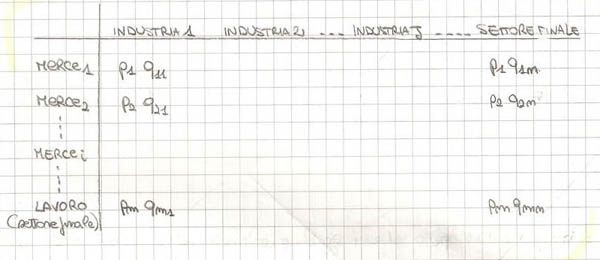 INDUSTRIA 1 INDUSTRIA 2 ... INDUSTRIA J ..... SETTORE FINALE
MERCE 1 P1 q11 P1 q1m
MERCE 2 P2 q21 P2 q2m
MERCE i
LAVORO Pm qm1 Pm qmm
(settore finale)